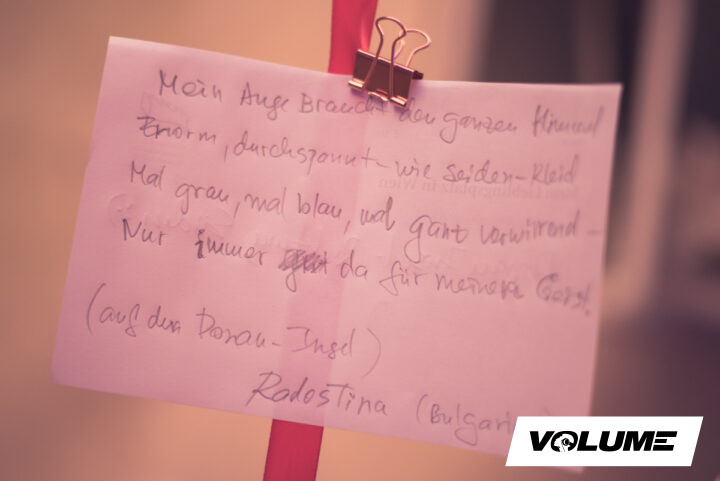 Mein Auge Braucht den ganzen Himmel
Enorm, durchspannt - wie seiden-Kleid
Mal grau, mal blau, mal ganz verwirrend -
Nur immer da für meinen Geist.
(auf den Donau-Insel)
Radostina (Bulgarien)
VOLUME